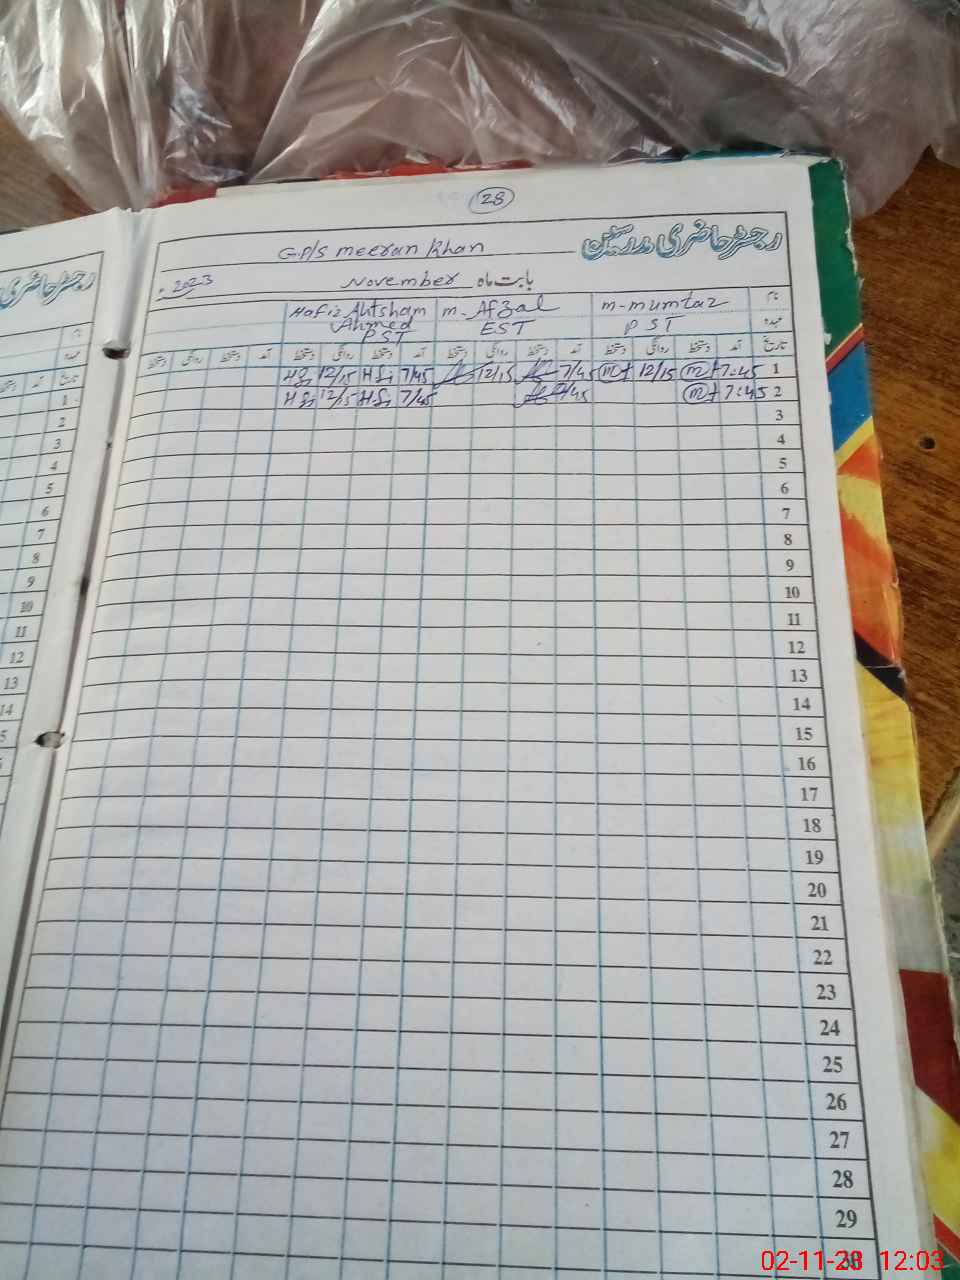 28
رجسٹر حاضری مدرسین
G.P/S meeran Khan
بابت ماه November 2023
نام Hafiz Ahtsham m-Afzal m-mumtaz
عہدہ Ahmed PST EST PST
تاریخ آمد دستخط روانگی دستخط آمد دستخط روانگی دستخط آمد دستخط روانگی دستخط آمد دستخط روانگی دستخط
1 7:45 m 12/15 m 7/45 12/15 7/45 Hfi 12/15 Hfi
2 7:45 m 7/45 7/45 Hfi 12/15 Hfi
3
4
5
6
7
8
9
10
11
12
13
14
15
16
17
18
19
20
21
22
23
24
25
26
27
28
29
30
رجسٹر حاضری
نام
عہدہ
تاریخ آمد دستخط
1
2
3
4
5
6
7
8
9
10
11
12
13
14
02-11-23 12:03